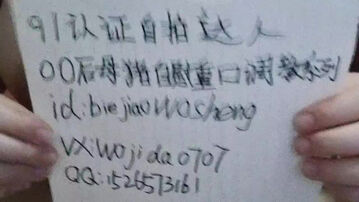 91认证自拍达人
00后母狗自慰重口调教系列
id:biejiaowosheng
VX:wojida0707
QQ:1526573161